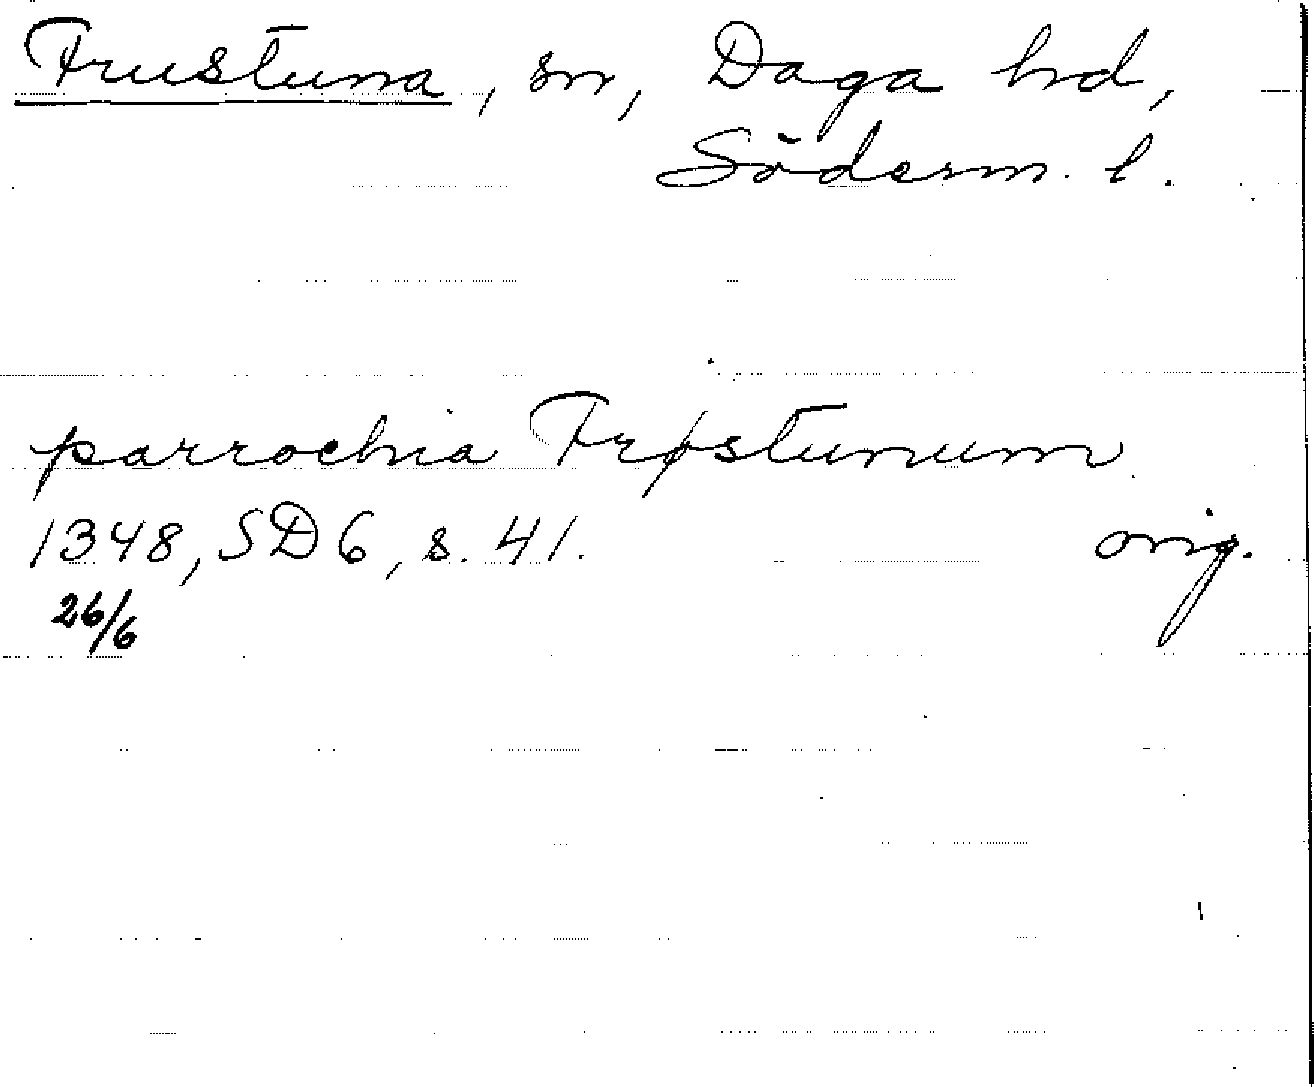 Frustuna, sn, Daga hd,
Söderm. l.
parrochia Frøstunum
1348, SD 6, s. 41. orig.
26/6